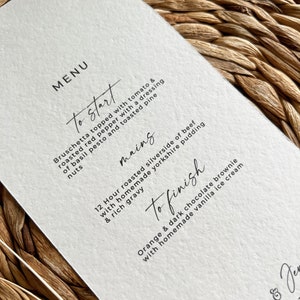 MENU
to start
Bruschetta topped with tomato &
roasted red pepper with a dressing
of basil pesto and toasted pine
nuts
mains
12 Hour roasted silverside of beef
with homemade yorkshire pudding
& rich gravy
to finish
Orange & dark chocolate brownie
with homemade vanilla ice cream
&